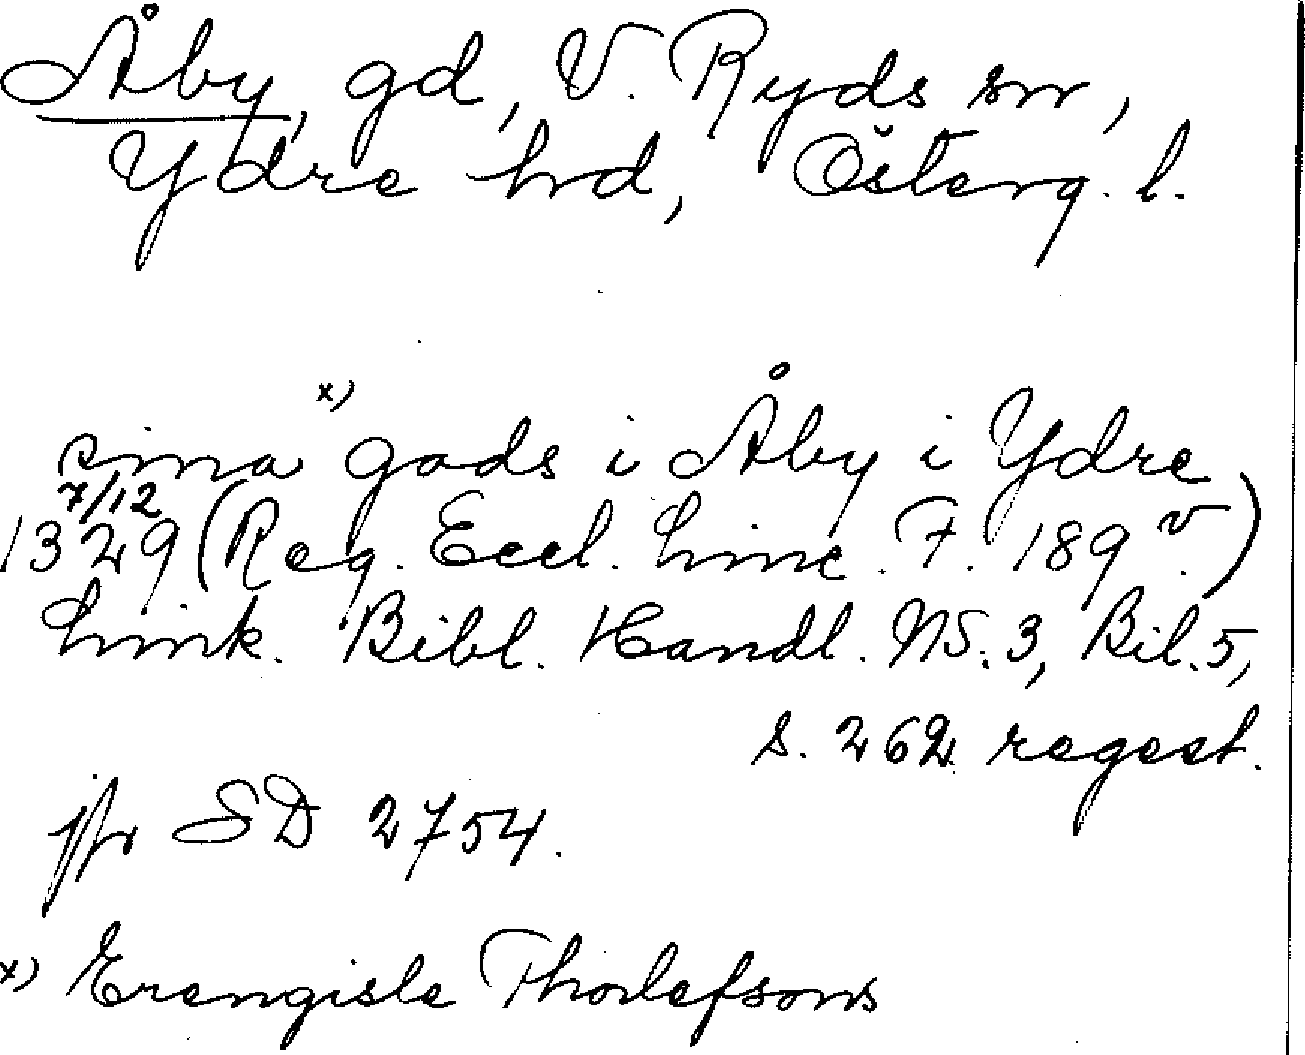 Åby, gd, V. Ryds sn,
Ydre hrd, Österg. l.
x)
sina gods i Åby i Ydre
7/12
1329 (Reg. Eccl. Linc. F. 189 v.)
Link. Bibl. Handl. NS. 3, Bil. 5,
s. 262 regest.
jfr SD 2754.
x) Erengisle Thorlefsons